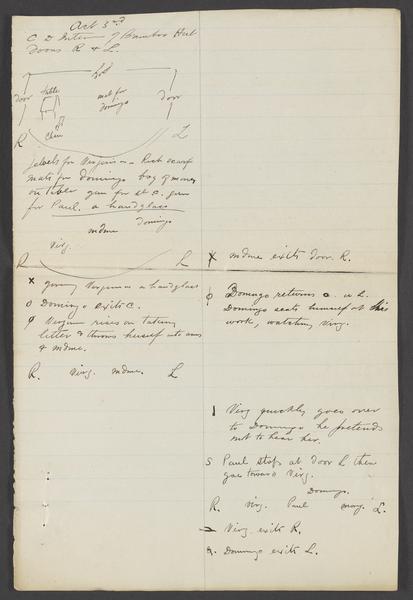 Act 3rd
C D Interior of Bamboo Hut
Doors R & L.
door Table mat for Domingo door
Chair
R L
Jewels for Virginia - a Rich scarf
mats for Domingo bag of money
on table gun for St C. gun
for Paul. a handglass
Domingo
mdme
Virg.
R L
x giving Virginia a handglass
o Domingo exits C.
φ Virginia rises on taking
letter & throws herself into arms
of mdme.
R. Virg. mdme. L
x mdme exits door R.
φ Domingo returns C. L.
Domingo seats himself at his
work, watching Virg.
1 Virg quickly goes over
to Domingo he pretends
not to hear her.
S Paul stops at door L then
goes towards Virg.
Domingo.
R. Virg. Paul marg. L.
Virg exits R.
& Domingo exits L.